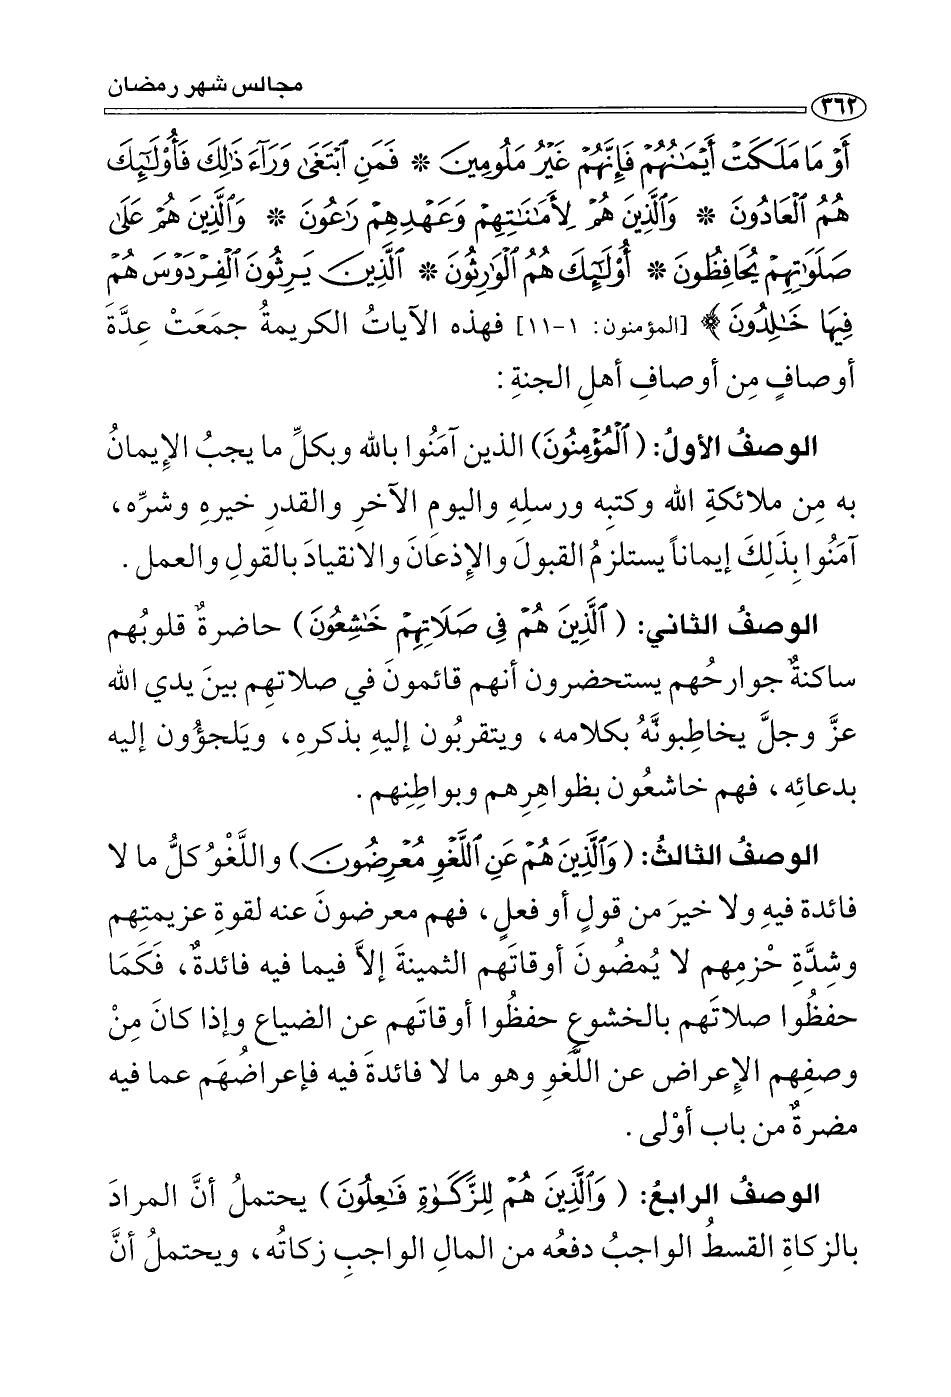 مجالس شهر رمضان
٣٦٢
أَوْ مَا مَلَكَتْ أَيْمَـٰنُهُمْ فَإِنَّهُمْ غَيْرُ مَلُومِينَ * فَمَنِ ٱبْتَغَىٰ وَرَآءَ ذَٰلِكَ فَأُوْلَـٰٓئِكَ
هُمُ ٱلْعَادُونَ * وَٱلَّذِينَ هُمْ لِأَمَـٰنَـٰتِهِمْ وَعَهْدِهِمْ رَٰعُونَ * وَٱلَّذِينَ هُمْ عَلَىٰ
صَلَوَٰتِهِمْ يُحَافِظُونَ * أُوْلَـٰٓئِكَ هُمُ ٱلْوَٰرِثُونَ * ٱلَّذِينَ يَرِثُونَ ٱلْفِرْدَوْسَ هُمْ
فِيهَا خَـٰلِدُونَ ﴾ [المؤمنون: ١-١١] فهذه الآياتُ الكريمةُ جمَعَتْ عِدَّةَ
أوصافٍ مِن أوصافِ أهلِ الجنةِ:
الوصفُ الأولُ: (ٱلْمُؤْمِنُونَ) الذين آمَنُوا بالله وبكلِّ ما يجبُ الإِيمانُ
به مِن ملائكةِ الله وكتبِه ورسلِهِ واليوم الآخرِ والقدرِ خيرهِ وشرِّه،
آمَنُوا بِذَلِكَ إيماناً يستلزمُ القبولَ والإِذعَانَ والانقيادَ بالقولِ والعمل.
الوصفُ الثاني: (ٱلَّذِينَ هُمْ فِى صَلَاتِهِمْ خَـٰشِعُونَ) حاضرةٌ قلوبُهم
ساكنةٌ جوارحُهم يستحضرون أنهم قائمونَ في صلاتهم بينَ يدي الله
عزَّ وجلَّ يخاطِبونَّهُ بكلامه، ويتقربُون إليهِ بذكرهِ، ويَلجؤُون إليه
بدعائِه، فهم خاشعُون بظواهِرِهم وبواطِنِهم.
الوصفُ الثالثُ: (وَٱلَّذِينَ هُمْ عَنِ ٱللَّغْوِ مُعْرِضُونَ) واللَّغْوُ كلُّ ما لا
فائدة فيهِ ولا خيرَ من قولٍ أو فعلٍ، فهم معرضونَ عنه لقوةِ عزيمتِهم
وشِدَّةِ حْزمِهم لا يُمضُونَ أوقاتَهم الثمينةَ إلاَّ فيما فيه فائدةٌ، فَكَمَا
حفظُوا صلاتَهم بالخشوعِ حفظُوا أوقاتَهم عن الضياع وإذا كانَ مِنْ
وصفِهم الإِعراض عن اللَّغوِ وهو ما لا فائدةَ فيه فإعراضُهَم عما فيه
مضرةٌ من باب أوْلى.
الوصفُ الرابعُ: (وَٱلَّذِينَ هُمْ لِلزَّكَوٰةِ فَـٰعِلُونَ) يحتملُ أنَّ المرادَ
بالزكاةِ القسطُ الواجبُ دفعُه من المالِ الواجبِ زكاتُه، ويحتملُ أنَّ